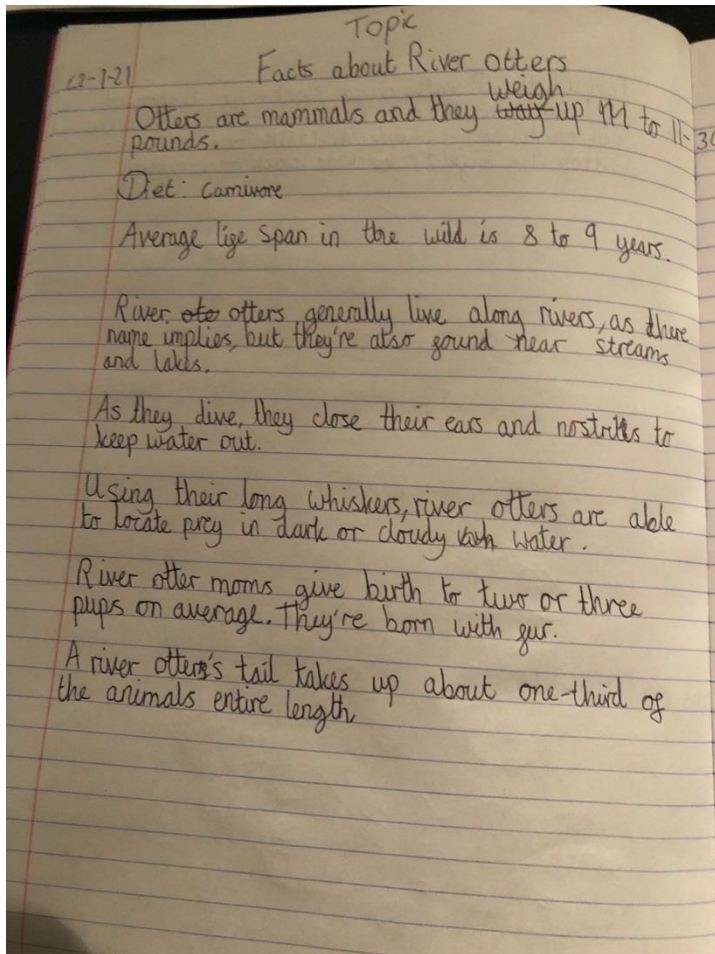 Topic
22-1-21 Facts about River otters
weigh
Otters are mammals and they way up to 11-30
pounds.
Diet: Carnivore
Average life span in the wild is 8 to 9 years.
River oto otters generally live along rivers, as there
name implies, but they're also found near streams
and lakes.
As they dive, they close their ears and nostrils to
keep water out.
Using their long whiskers, river otters are able
to locate prey in dark or cloudy water.
River otter moms give birth to two or three
pups on average. They're born with fur.
A river otters's tail takes up about one-third of
the animals entire length,